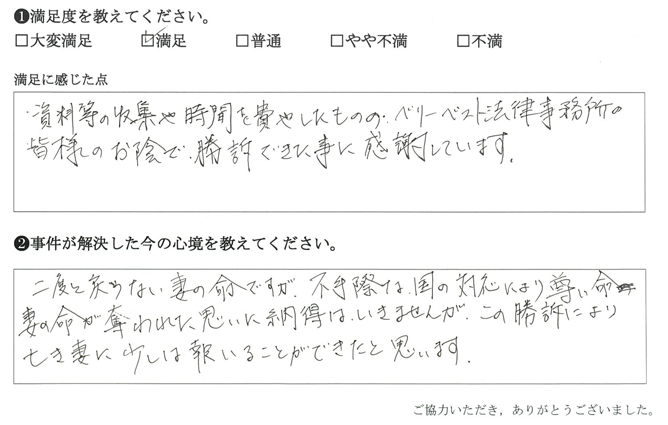 ❶満足度を教えてください。
□大変満足 ☑満足 □普通 □やや不満 □不満
満足に感じた点
・資料等の収集や時間を費やしたものの、ベリーベスト法律事務所の
皆様のお陰で、勝訴できた事に感謝しています。
❷事件が解決した今の心境を教えてください。
二度と戻らない妻の命ですが、不手際な、国の対応により尊い命
妻の命が奪われた思いに納得は、いきませんが、この勝訴により
亡き妻に少しは報いることができたと思います。
ご協力いただき，ありがとうございました。